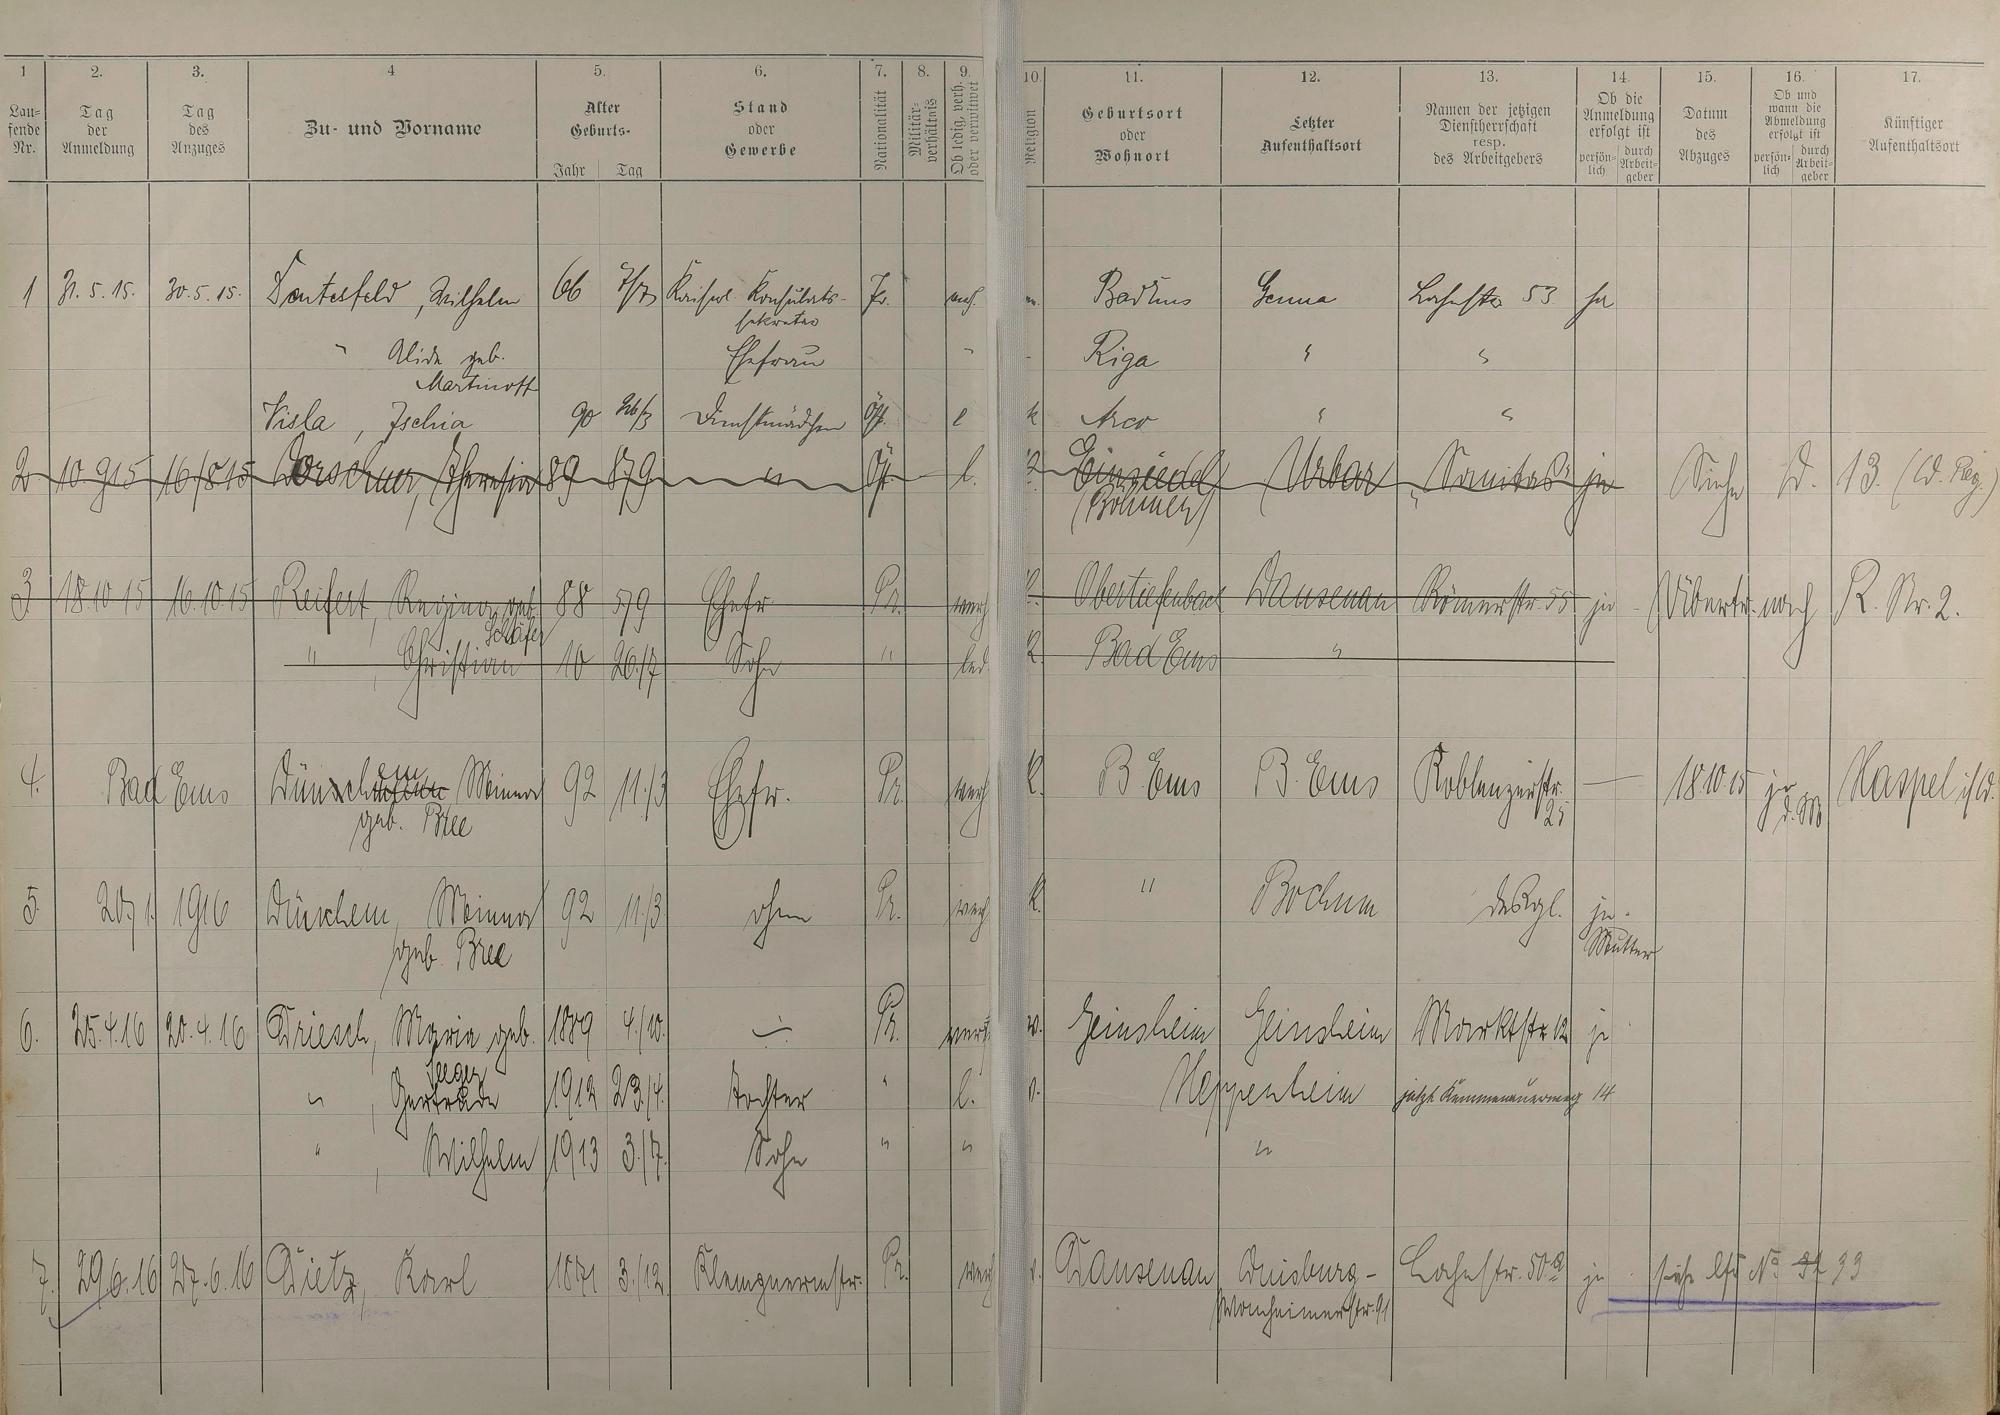 1 2. 3. 4 5. 6. 7. 8. 9. 10. 11. 12. 13. 14. 15. 16. 17.
Lau-
fende
Nr.
Tag
der
Anmeldung
Tag
des
Anzuges
Zu- und Vorname
Alter
Geburts-
Jahr Tag
Stand
oder
Gewerbe
Nationalität
Militär-
verhältnis
Ob ledig, verh.
oder verwitwet
Religion
Geburtsort
oder
Wohnort
Letzter
Aufenthaltsort
Namen der jetzigen
Dienstherrschaft
resp.
des Arbeitgebers
Ob die
Anmeldung
erfolgt ist
persön-
lich
durch
Arbeit-
geber
Datum
des
Abzuges
Ob und
wann die
Abmeldung
erfolgt ist
persön-
lich
durch
Arbeit-
geber
Künftiger
Aufenthaltsort
1 31. 5. 15. 30. 5. 15. Wilhelm 66 Kaiserl. Konsulats- Bad Ems Genua Lahnstr 53 ja
sekretär
" Alide geb. Ehefrau " Riga " "
Martinoff
Visla, Ischia 90 26/3 Dienstmädchen Öst. l k Arco " "
2 10 9 15 16/8 15 89 8/9 " Öst. l. Einsiedl Urbar ja Siehe D. 13. (D. Reg.)
(Böhmen)
3 18.10 15 16.10.15 Reifert, Regina geb. 88 5/9 Ehefr Pr. verh Obertiefenbach Dausenau Römerstr. 55 ja (Übertr. nach R. Nr. 2.
Schäfer
" , Christian 10 26/7 Sohn " led. Bad Ems "
4. Bad Ems Minna 92 11./3 Ehefr. Pr. verh K. B. Ems B. Ems Koblenzerstr. — 18.10.15 ja Haspel i/W.
geb. Bree 25 d. M
5. 20/1. 1916 Düschem, Minna 92 11./3 ohne Pr. verh K. " Bochum desgl. ja.
geb. Bree Mutter
6. 25.4.16 20.4.16 Driesch, Maria geb. 1889 4./10. — Pr. verh. Geinsheim Geinsheim Marktstr 12 ja
Seeger
" , Gertrude 1912 23./4. Tochter " l. Heppenheim jetzt Kemmenauerweg 14
" , Wilhelm 1913 3./7. Sohn " " "
7. 29.6.16 27.6.16 Dietz, Karl 1871 3./12 Klempnermstr. Pr. verh Dausenau Duisburg- Lahnstr. 50a ja siehe lfd No 33
Wanheimerstr. 91